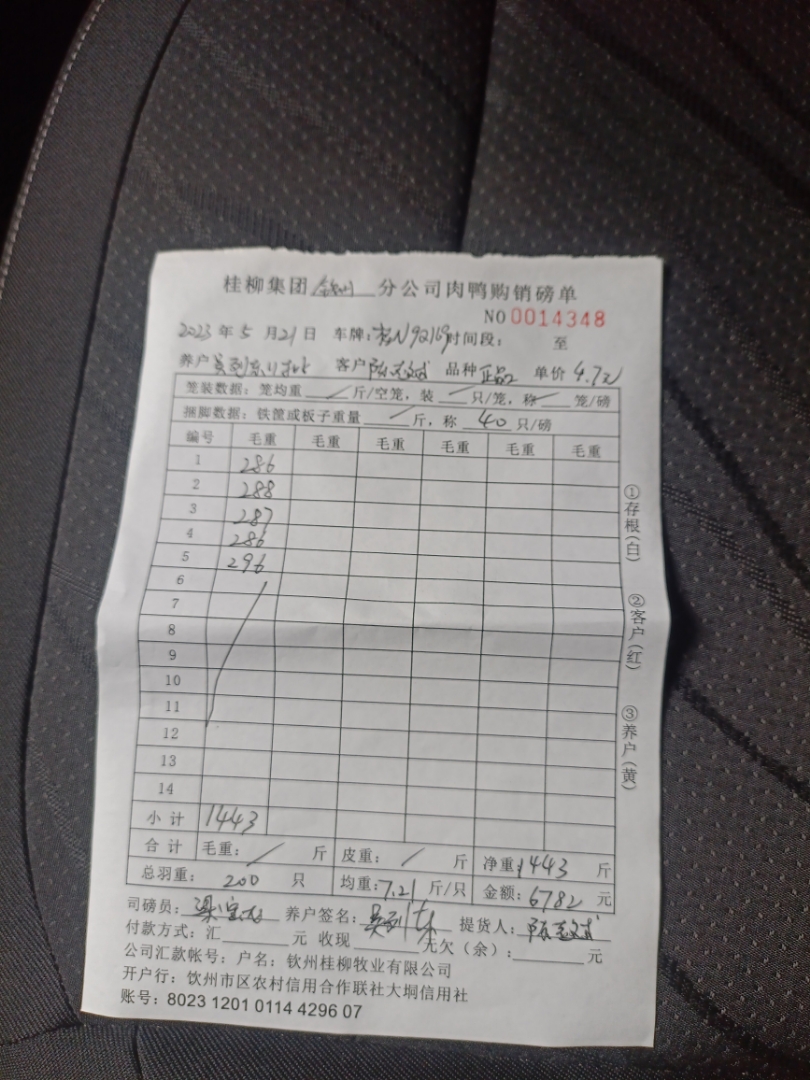 桂柳集团 钦州 分公司肉鸭购销磅单
NO 0014348
2023 年 5 月 21 日 车牌: N92169 时间段: 至
养户 客户 陈 品种 正品 单价 4.7元
笼装数据: 笼均重 斤/空笼, 装 只/笼, 称 笼/磅
捆脚数据: 铁筐或板子重量 斤, 称 40 只/磅
编号 毛重 毛重 毛重 毛重 毛重 毛重
1 286
2 288
3 287
4 286
5 296
6
7
8
9
10
11
12
13
14
小计 1443
合计 毛重: 斤 皮重: 斤 净重: 1443 斤
总羽重: 200 只 均重: 7.21 斤/只 金额: 6782 元
①存根(白) ②客户(红) ③养户(黄)
司磅员: 梁 养户签名: 提货人: 陈
付款方式: 汇 元 收现 元欠(余): 元
公司汇款帐号: 户名: 钦州桂柳牧业有限公司
开户行: 钦州市区农村信用合作联社大垌信用社
账号: 8023 1201 0114 4296 07